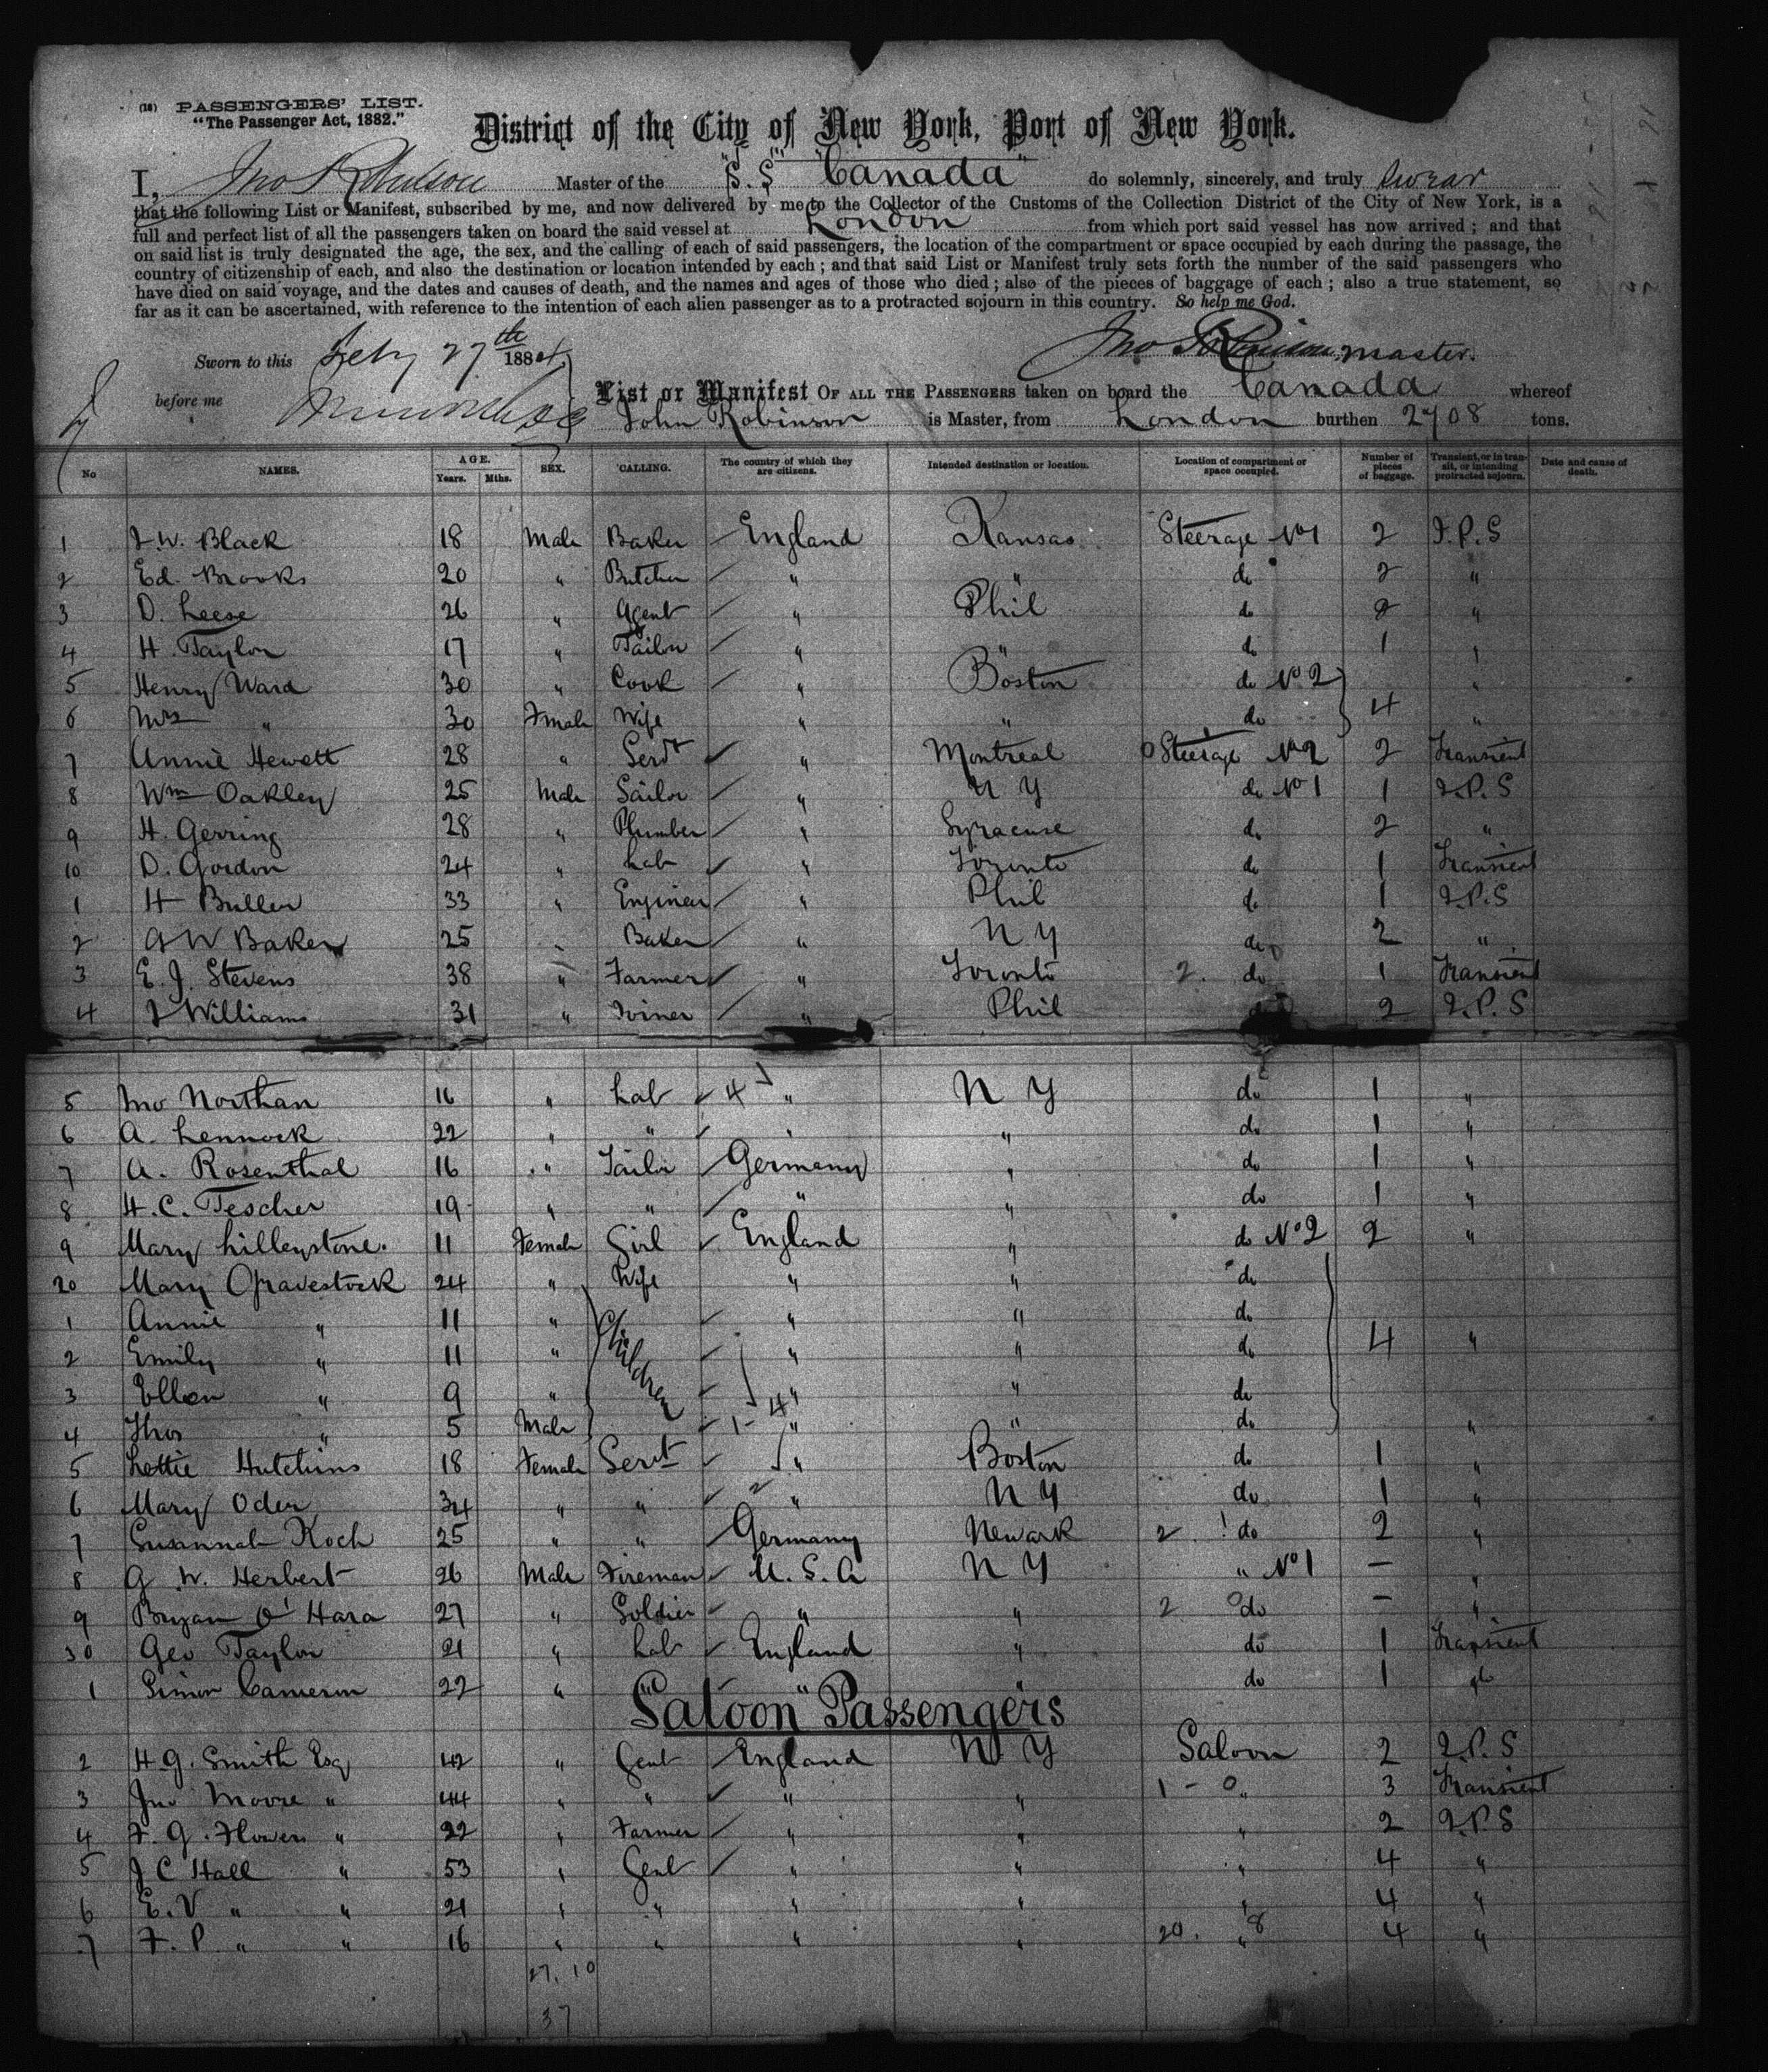 (18) PASSENGERS' LIST.
"The Passenger Act, 1882."
District of the City of New York, Port of New York.
I, Jno Robinson Master of the "S.S "Canada" do solemnly, sincerely, and truly swear
that the following List or Manifest, subscribed by me, and now delivered by me to the Collector of the Customs of the Collection District of the City of New York, is a
full and perfect list of all the passengers taken on board the said vessel at London from which port said vessel has now arrived; and that
on said list is truly designated the age, the sex, and the calling of each of said passengers, the location of the compartment or space occupied by each during the passage, the
country of citizenship of each, and also the destination or location intended by each; and that said List or Manifest truly sets forth the number of the said passengers who
have died on said voyage, and the dates and causes of death, and the names and ages of those who died; also of the pieces of baggage of each; also a true statement, so
far as it can be ascertained, with reference to the intention of each alien passenger as to a protracted sojourn in this country. So help me God.
Sworn to this Feby 27th 1884 Jno Robinson, master.
before me
List or Manifest OF ALL THE PASSENGERS taken on board the Canada whereof
John Robinson is Master, from London burthen 2708 tons.
No NAMES. AGE. Years. Mths. SEX. CALLING. The country of which they are citizens. Intended destination or location. Location of compartment or space occupied. Number of pieces of baggage. Transient, or in transit, or intending protracted sojourn. Date and cause of death.
1 J.W. Black 18 Male Baker England Kansas Steerage No 1 2 I.P.S
2 Ed. Brooks 20 " Butcher " " do 2 "
3 D. Leese 26 " Agent " Phil do 2 "
4 H. Taylor 17 " Tailor " " do 1 "
5 Henry Ward 30 " Cook " Boston do No 2 "
6 Mrs " 30 Fmale Wife " " do 4 "
7 Annie Hewett 28 " Servt " Montreal Steerage No 2 2 Transient
8 Wm Oakley 25 Male Sailor " N Y do No 1 1 I.P.S
9 H. Gerring 28 " Plumber " Syracuse do 2 "
10 D. Gordon 24 " Lab " Toronto do 1 Transient
1 H Buller 33 " Enginer " Phil do 1 I.P.S
2 G W Baker 25 " Baker " N Y do 2 "
3 E. J. Stevens 38 " Farmer " Toronto 2. do 1 Transient
4 J Williams 31 " Joiner " Phil do 2 I.P.S
5 Jno Northan 16 " Lab 4 " N Y do 1 "
6 A. Lennock 22 " " " " do 1 "
7 A. Rosenthal 16 " Tailor Germany " do 1 "
8 H.C. Tescher 19 " " " " do 1 "
9 Mary Lilleystone. 11 Female Girl England " do No 2 2 "
20 Mary Gravestock 24 " Wife " " do
1 Annie " 11 " Children " " do
2 Emily " 11 " " " do 4 "
3 Ellen " 9 " " " do
4 Thos " 5 Male 1-4 " " do "
5 Lettie Hutchins 18 Female Servt " Boston do 1 "
6 Mary Oden 34 " " 2 " N Y do 1 "
7 Susannah Koch 25 " " Germany Newark 2 do 2 "
8 G W. Herbert 26 Male Fireman U.S.A N Y " No 1 — "
9 Bryan O'Hara 27 " Soldier " " 2 do — "
30 Geo Taylor 21 " Lab England " do 1 Transient
1 Simon Cameron 22 " " " " do 1 do
Saloon Passengers
2 H.G. Smith Esq 42 " Gent England N Y Saloon 2 I.P.S
3 Jno Moore " 44 " " " " 1 - 0 " 3 Transient
4 F. G. Flowers " 22 " Farmer " " " 2 I.P.S
5 J C Hall " 53 " Gent " " " 4 "
6 E. V " " 21 " " " " " 4 "
7 F. P. " " 16 " " " " 20. 8 " 4 "
27. 10
37